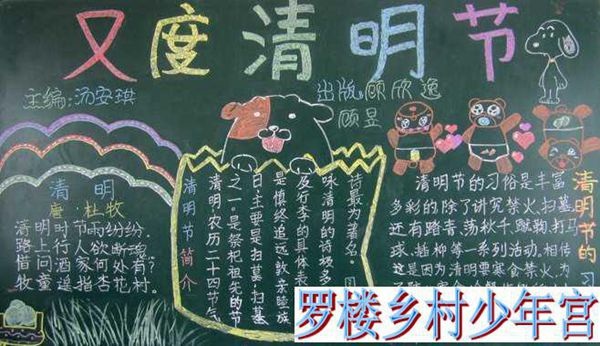 又度清明节
主编:汤安琪
出版:顾欣逸
顾昱
清明
唐·杜牧
清明时节雨纷纷,
路上行人欲断魂。
借问酒家何处有?
牧童遥指杏花村。
清明节简介
清明,农历二十四节气
之一,是祭祀祖先的节
日,主要是扫墓,扫墓
是慎终追远、敦亲睦族
及行孝的具体表
咏清明的诗极多
诗最为著名。
清明节的习
清明节的习俗是丰富
多彩的,除了讲究禁火、扫墓
还有踏青、荡秋千、蹴鞠、打马
球、插柳等一系列活动。相传
这是因为清明要寒食禁火,为
罗楼乡村少年宫